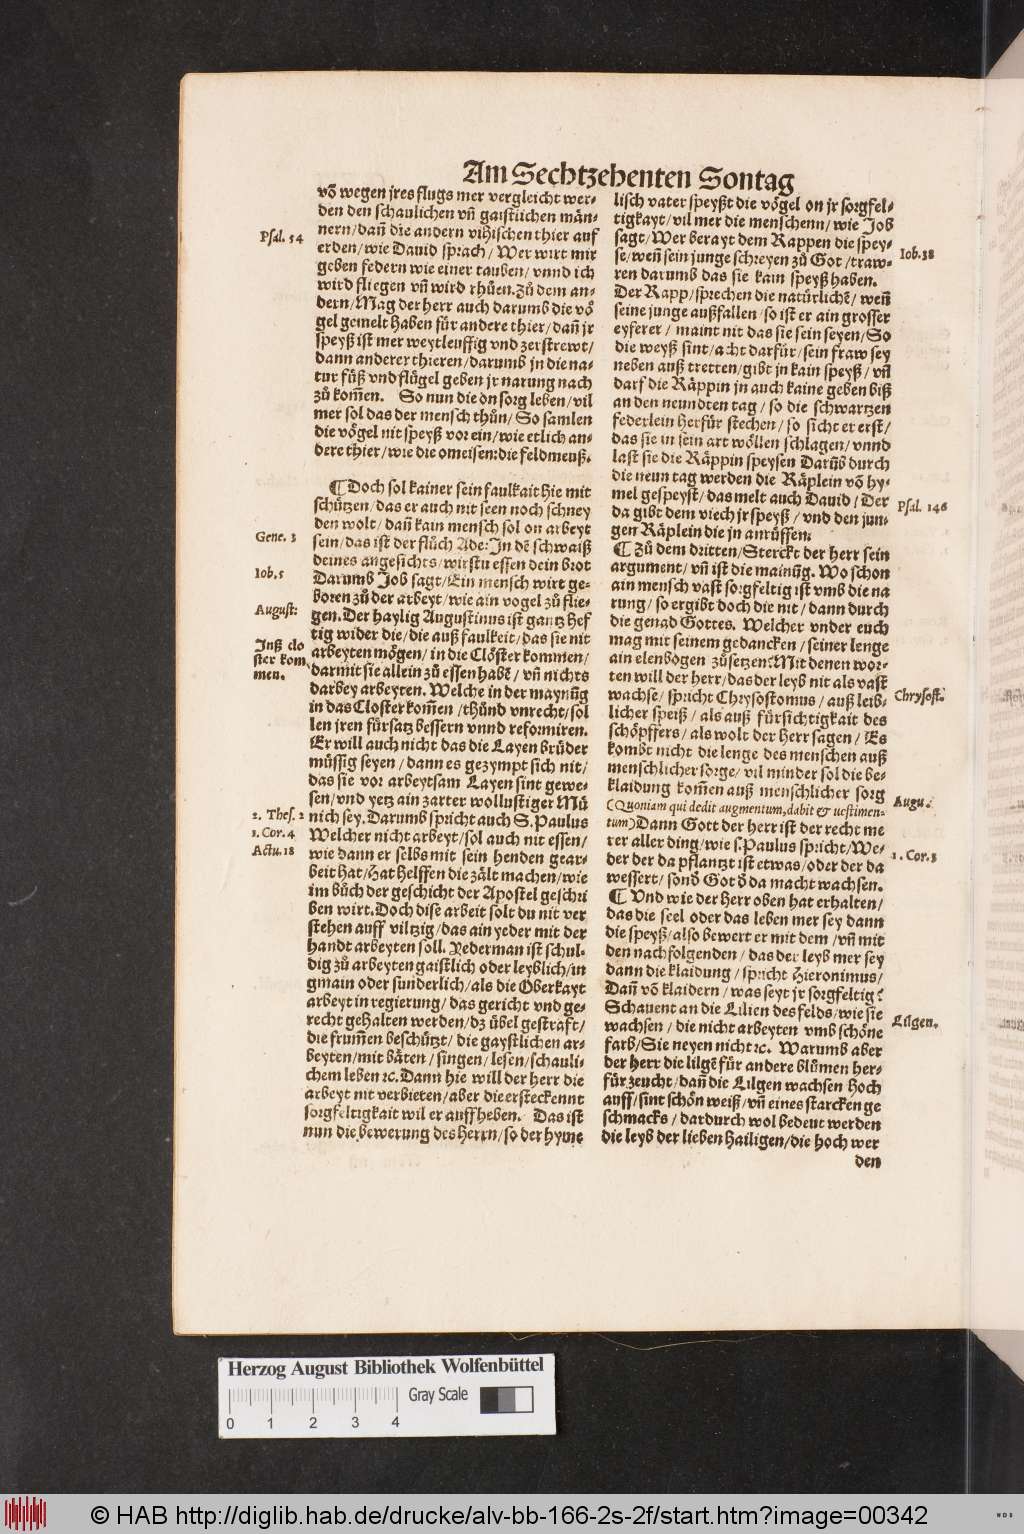 Am Sechtzehenten Sontag
võ wegen jres flugs mer vergleicht wer-
den den schaulichen vñ gaistlichen män-
nern/dañ die andern vihischen thier auf
erden/wie Dauid sprach/Wer wirt mir
geben federn wie einer tauben/vnnd ich
wird fliegen vñ wird rhůen. Zů dem an-
dern/Mag der herr auch darumb die vö
gel gemelt haben für andere thier/dañ jr
speyß ist mer weytleuffig vnd zerstrewt/
dann anderer thieren/darumb jn die na-
tur füß vnd flügel geben jr narung nach
zů kom̃en. So nun die on sorg leben/vil
mer sol das der mensch thůn/So samlen
die vögel nit speyß vor ein/wie etlich an-
dere thier/wie die omeisen: die feldmeuß.
Psal. 54
¶ Doch sol kainer sein faulkait hie mit
schützen/das er auch nit seen noch schney
den wolt/dañ kain mensch sol on arbeyt
sein/das ist der flůch Ade: In dẽ schwaiß
deines angesichts/wirstu essen dein brot
Darumb Job sagt/Ein mensch wirt ge-
boren zů der arbeyt/wie ain vogel zů flie-
gen. Der haylig Augustinus ist gantz hef
tig wider die/die auß faulkeit/das sie nit
arbeyten mögen/in die Clöster kommen/
darmit sie allein zů essen habẽ/vñ nichts
darbey arbeyten. Welche in der maynũg
in das Closter kom̃en/thůnd vnrecht/sol
len jren fürsatz bessern vnnd reformiren.
Er will auch nicht das die Layen brüder
müssig seyen/dann es gezympt sich nit/
das sie vor arbeytsam Layen sint gewe-
sen/vnd yetz ain zarter wollustiger Mü
nich sey. Darumb spricht auch S. Paulus
Welcher nicht arbeyt/sol auch nit essen/
wie dann er selbs mit sein henden gear-
beit hat/hat helffen die zält machen/wie
im bůch der geschicht der Apostel geschri
ben wirt. Doch dise arbeit solt du nit ver
stehen auff viltzig/das ain yeder mit der
handt arbeyten soll. Yederman ist schul-
dig zů arbeyten gaistlich oder leyblich/in
gmain oder sunderlich/als die Oberkayt
arbeyt in regierung/das gericht vnd ge-
recht gehalten werden/dz übel gestraft/
die frum̃en beschützt/die gaystlichen ar-
beyten/mit bäten/singen/lesen/schauli-
chem leben ꝛc. Dann hie will der herr die
arbeyt nit verbieten/aber die ersteckennt
sorgfeltigkait wil er auffheben. Das ist
nun die bewerung des Herrn/so der hyme
Gene. 3
Iob. 5
August:
Inß clo
ster kom
men.
2. Thes. 2
1. Cor. 4
Actu. 18
lisch vater speyßt die vögel on jr sorgfel-
tigkayt/vil mer die menschenn/wie Job
sagt/Wer berayt dem Rappen die spey-
se/weñ sein junge schreyen zů Got/traw-
ren darumb das sie kain speyß haben.
Der Rapp/sprechen die natürlichẽ/weñ
seine junge außfallen/so ist er ain grosser
eyferer/maint nit das sie sein seyen/So
die weyß sint/acht darfür/sein fraw sey
neben auß tretten/gibt jn kain speyß/vñ
darf die Räppin jn auch kaine geben biß
an den neundten tag/so die schwartzen
federlein herfür stechen/so sicht er erst/
das sie in sein art wöllen schlagen/vnnd
last sie die Räppin speysen Darũb durch
die neun tag werden die Räplein võ hy-
mel gespeyst/das melt auch Dauid/Der
da gibt dem viech jr speyß/vnd den jun-
gen Räplein die jn anrůffen.
¶ Zů dem dritten/Sterckt der herr sein
argument/vñ ist die mainũg. Wo schon
ain mensch vast sorgfeltig ist vmb die na
rung/so ergibt doch die nit/dann durch
die genad Gottes. Welcher vnder euch
mag mit seinem gedancken/seiner lenge
ain elenbogen zůsetzen? Mit denen wor-
ten will der herr/das der leyb nit als vast
wachse/spricht Chrysostomus/auß leib-
licher speiß/als auß fürsichtigkait des
schöpffers/als wolt der Herr sagen/Es
kombt nicht die lenge des menschen auß
menschlicher sorge/vil minder sol die be-
klaidung kom̃en auß menschlicher sorg
(Quoniam qui dedit augmentum, dabit & uestimen-
tum) Dann Gott der herr ist der recht me
rer aller ding/wie s. Paulus spricht/We-
der der da pflantzt ist etwas/oder der da
wessert/sond̃ Got d̃ da macht wachsen.
¶ Vnd wie der Herr oben hat erhalten/
das die seel oder das leben mer sey dann
die speyß/also bewert er mit dem/vñ mit
den nachfolgenden/das der leyb mer sey
dann die klaidung/spricht Hieronimus/
Dañ võ klaidern/was seyt jr sorgfeltig?
Schauent an die Lilien des felds/wie sie
wachsen/die nicht arbeyten vmb schöne
farb/Sie neyen nicht ꝛc. Warumb aber
der herr die lilgẽ für andere blůmen her-
für zeucht/dañ die Lilgen wachsen hoch
auff/sint schön weiß/vñ eines starcken ge
schmacks/dardurch wol bedeut werden
die leyb der lieben Hailigen/die hoch wer
den
Iob. 38
Psal. 146
Chrysost.
Augu.
1. Cor. 3
Lilgen.
Herzog August Bibliothek Wolfenbüttel
Gray Scale
0 1 2 3 4
© HAB http://diglib.hab.de/drucke/alv-bb-166-2s-2f/start.htm?image=00342